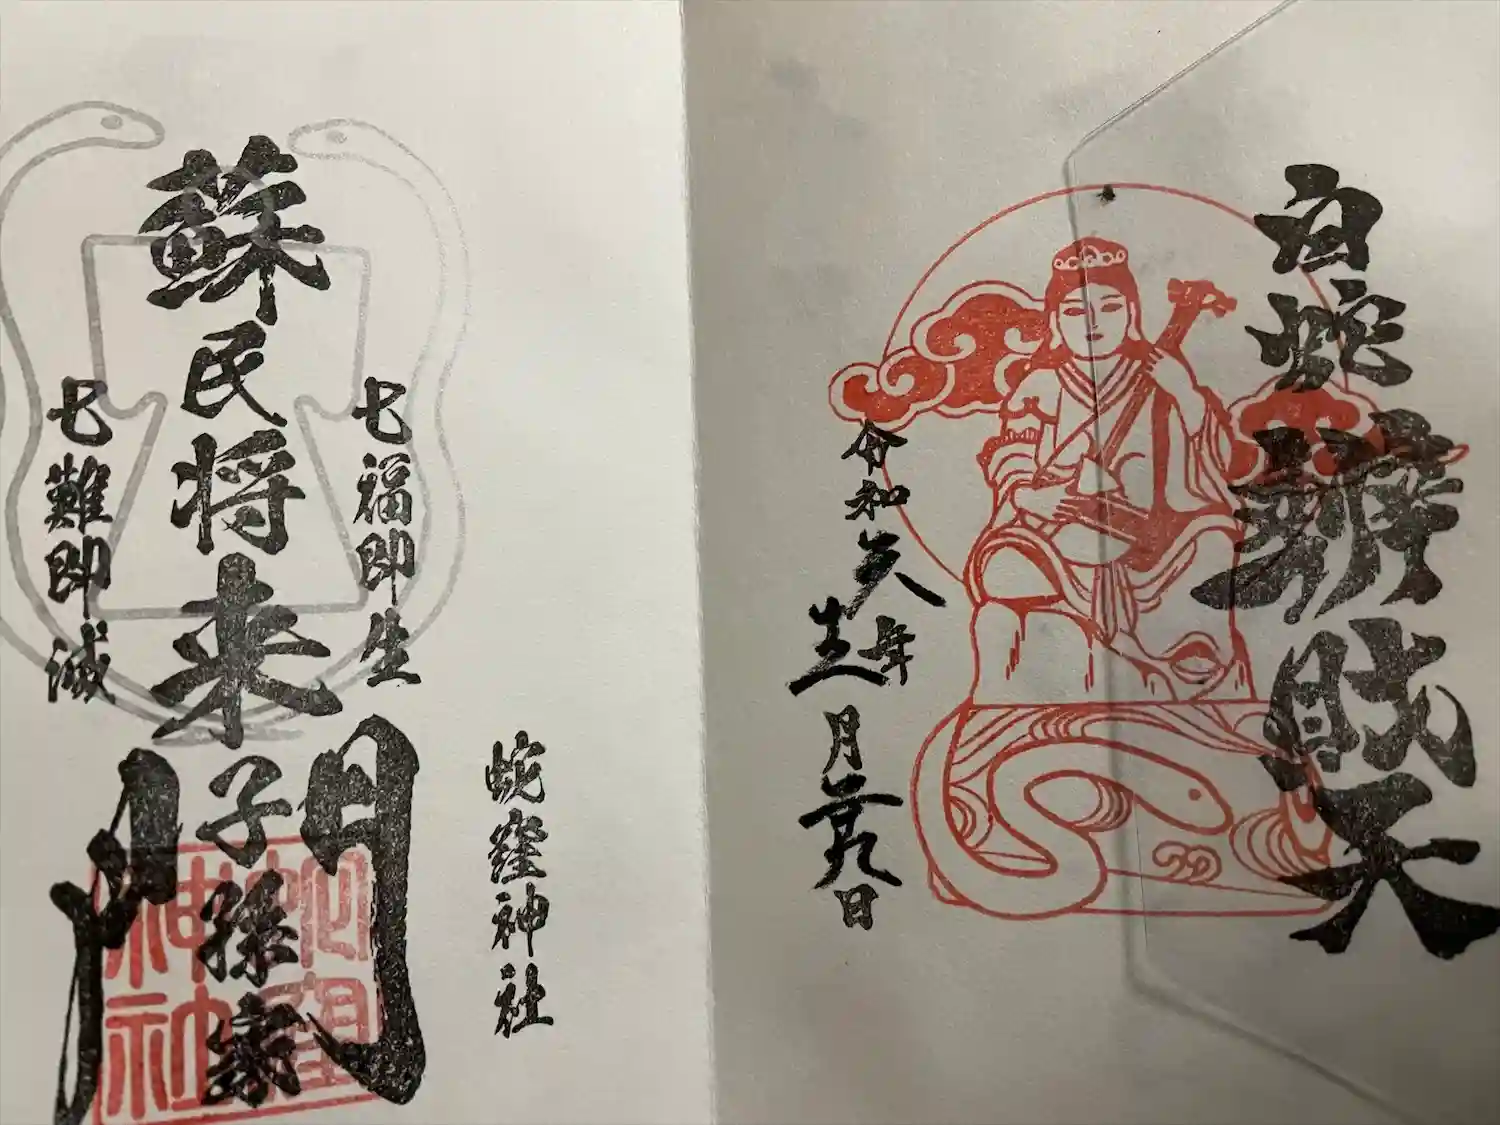 白蛇辨財天
令和年
月廿九日
蛇窪神社
七福即生
蘇民将来子孫家門
七難即滅
蛇窪神社